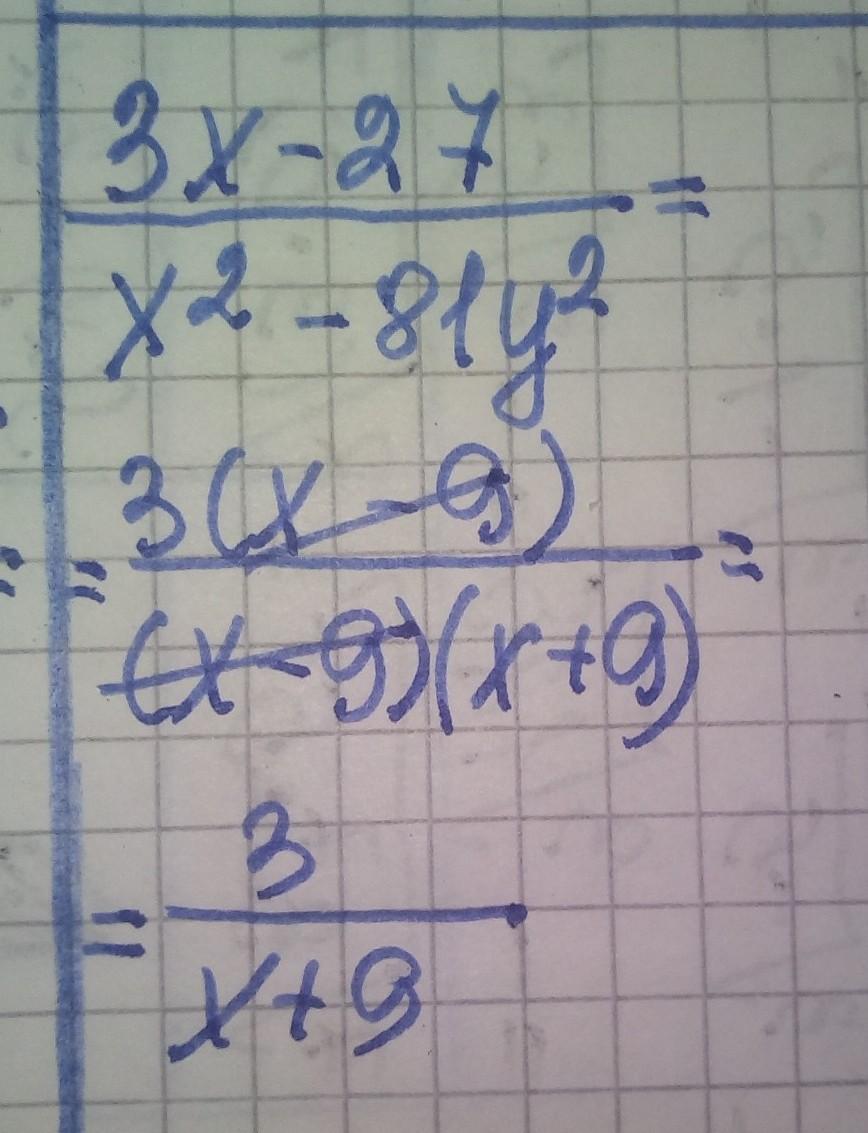 3x-27
x² - 81y² =
= 3(x-9)
(x-9)(x+9) =
= 3
x+9